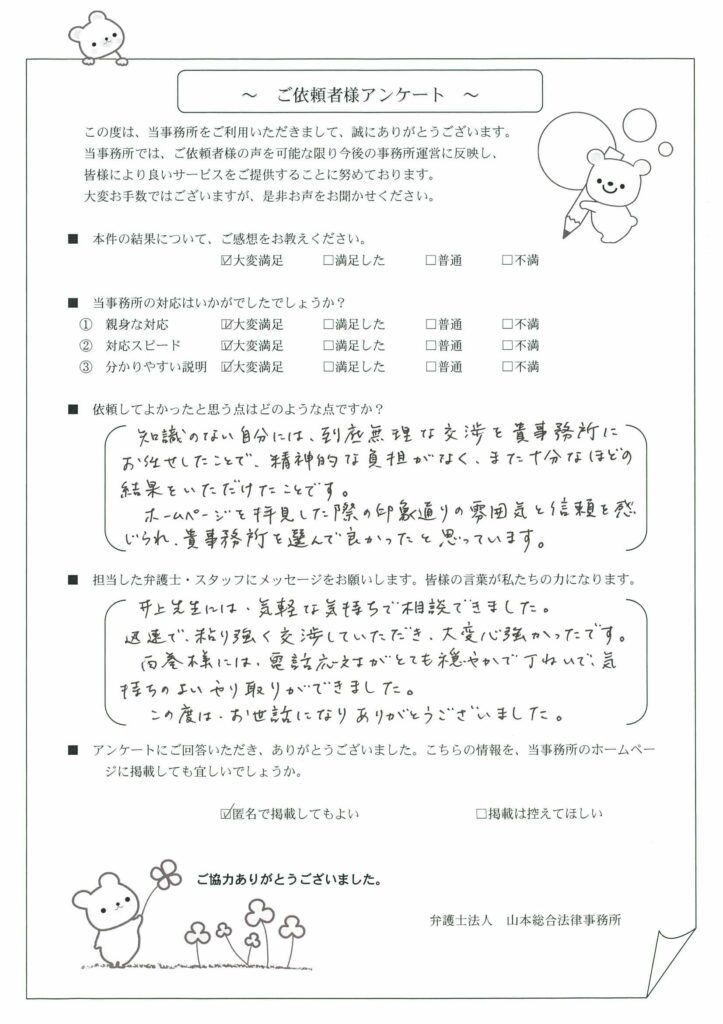 ～ ご依頼者様アンケート ～
この度は、当事務所をご利用いただきまして、誠にありがとうございます。
当事務所では、ご依頼者様の声を可能な限り今後の事務所運営に反映し、
皆様により良いサービスをご提供することに努めております。
大変お手数ではございますが、是非お声をお聞かせください。
■ 本件の結果について、ご感想をお教えください。
☑大変満足 □満足した □普通 □不満
■ 当事務所の対応はいかがでしたでしょうか？
① 親身な対応 ☑大変満足 □満足した □普通 □不満
② 対応スピード ☑大変満足 □満足した □普通 □不満
③ 分かりやすい説明 ☑大変満足 □満足した □普通 □不満
■ 依頼してよかったと思う点はどのような点ですか？
知識のない自分には、到底無理な交渉を貴事務所に
お任せしたことで、精神的な負担がなく、また十分なほどの
結果をいただけたことです。
ホームページを拝見した際の印象通りの雰囲気と信頼を感
じられ、貴事務所を選んで良かったと思っています。
■ 担当した弁護士・スタッフにメッセージをお願いします。皆様の言葉が私たちの力になります。
井上先生には、気軽な気持ちで相談できました。
迅速で、粘り強く交渉していただき、大変心強かったです。
様には、電話応対がとても穏やかで丁ねいで、気
持ちのよいやり取りができました。
この度は、お世話になりありがとうございました。
■ アンケートにご回答いただき、ありがとうございました。こちらの情報を、当事務所のホームペー
ジに掲載しても宜しいでしょうか。
☑匿名で掲載してもよい □掲載は控えてほしい
ご協力ありがとうございました。
弁護士法人 山本総合法律事務所